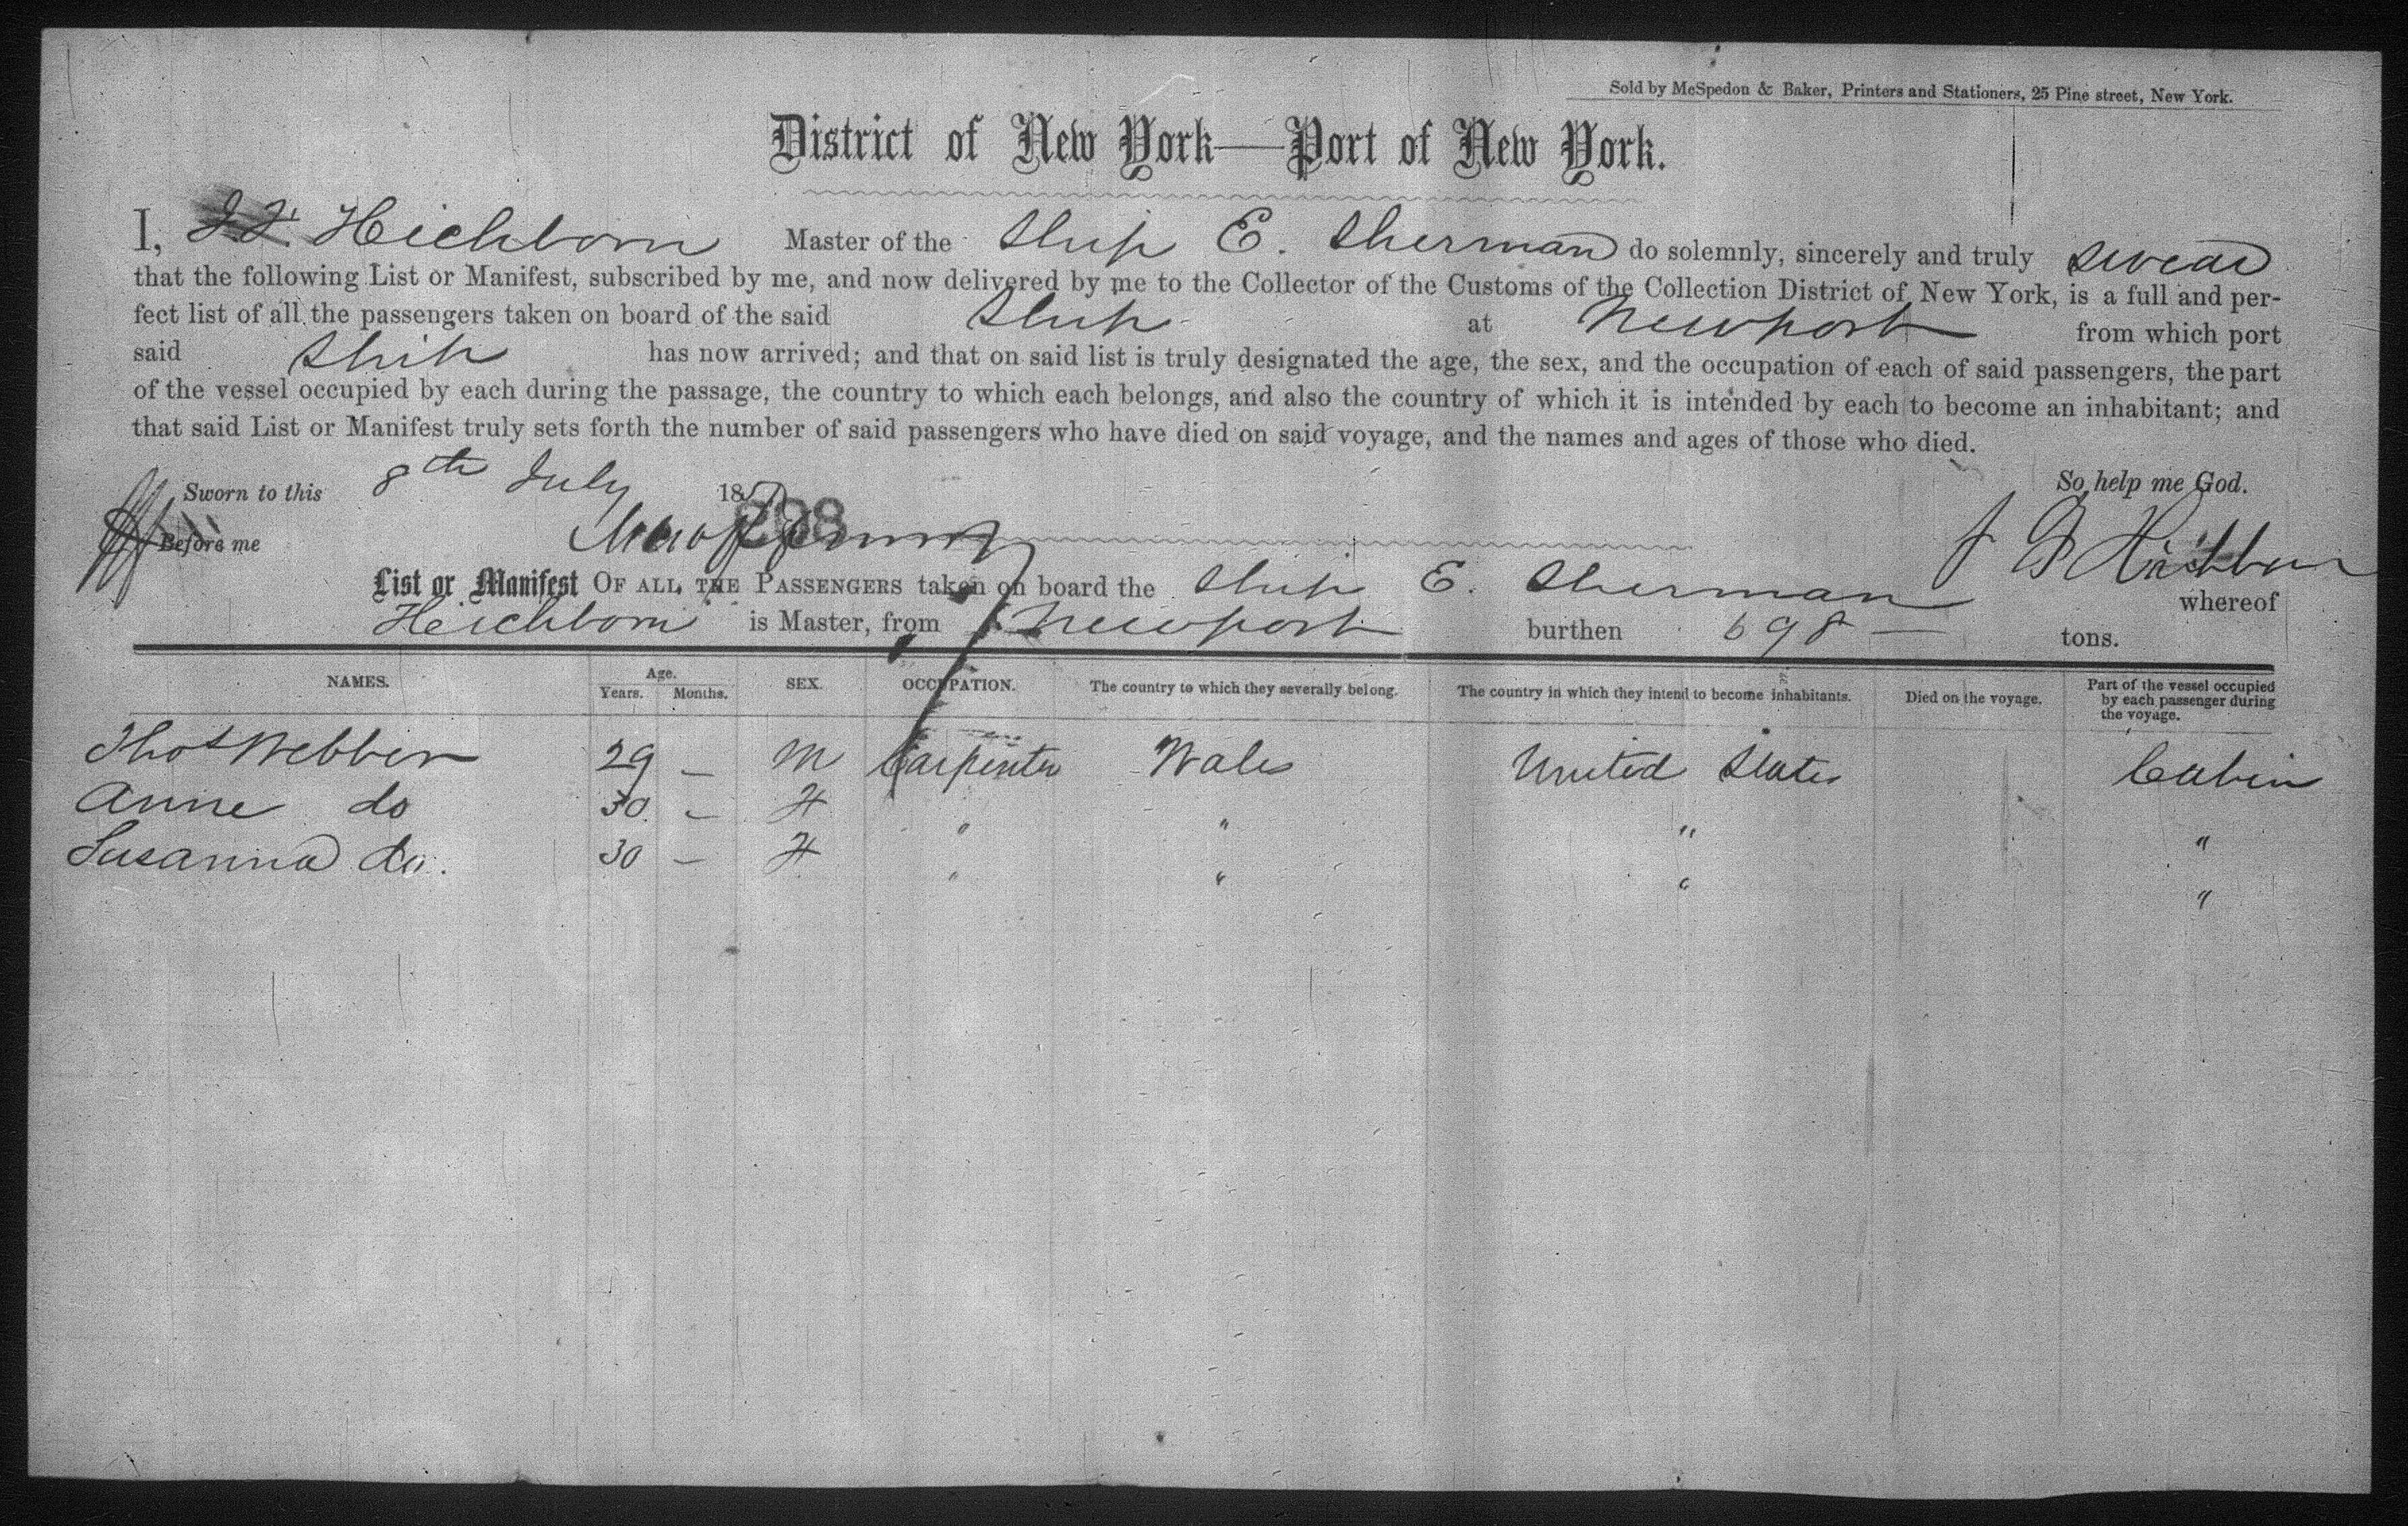 Sold by McSpedon & Baker, Printers and Stationers, 25 Pine street, New York.
District of New York—Port of New York.
I, Heichborn Master of the Ship E. Sherman do solemnly, sincerely and truly swear
that the following List or Manifest, subscribed by me, and now delivered by me to the Collector of the Customs of the Collection District of New York, is a full and per-
fect list of all the passengers taken on board of the said Ship at Newport from which port
said Ship has now arrived; and that on said list is truly designated the age, the sex, and the occupation of each of said passengers, the part
of the vessel occupied by each during the passage, the country to which each belongs, and also the country of which it is intended by each to become an inhabitant; and
that said List or Manifest truly sets forth the number of said passengers who have died on said voyage, and the names and ages of those who died.
Sworn to this 8th July 18 So help me God.
Before me
List or Manifest OF ALL THE PASSENGERS taken on board the Ship E. Sherman whereof
Heichborn is Master, from Newport burthen 698 — tons.
NAMES. Age. Years. Months. SEX. OCCUPATION. The country to which they severally belong. The country in which they intend to become inhabitants. Died on the voyage. Part of the vessel occupied by each passenger during the voyage.
Thos Webber 29 — M Carpenter Wales United States Cabin
Anne do 30. — F " " " "
Susanna do. 30 — F " " " "